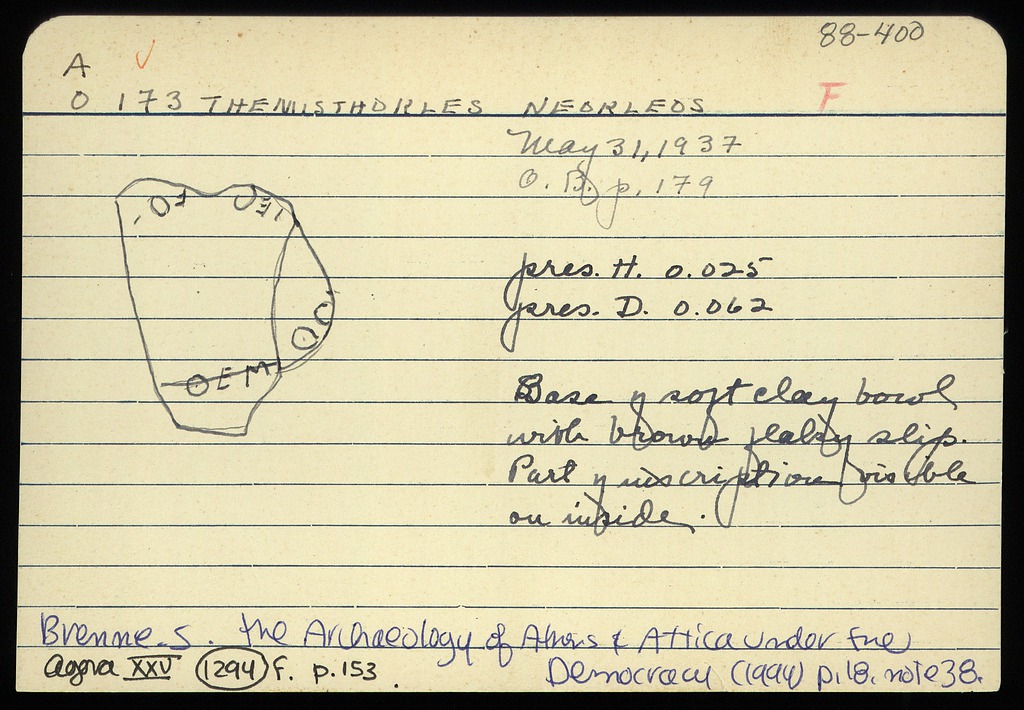 88-400
A
O 173 THEMISTHOKLES NEOKLEOS F
May 31, 1937
O. B. p. 179
pres. H. 0.025
pres. D. 0.062
OEM
Base of soft clay bowl
with brown flaky slip.
Part of inscription visible
on inside.
Brenne. S. The Archaeology of Athens & Attica under the
Democracy (1994) p. 18. note 38.
Agora XXV 1294 f. p. 153.